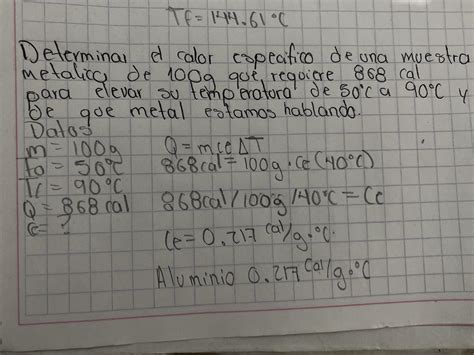 Tf = 144.61°C
Determinar el calor especifico de una muestra
metalica de 100g que requiere 868 cal
para elevar su temperatura de 50°C a 90°C y
De que metal estamos hablando.
Datos
m = 100g Q = m ce ΔT
to = 50°C 868cal = 100g · Ce (40°C)
Tf = 90°C
Q = 868 cal 868cal/100g/40°C = Ce
c = ?
Ce = 0.217 cal/g·°C
Aluminio 0.217 cal/g·°C